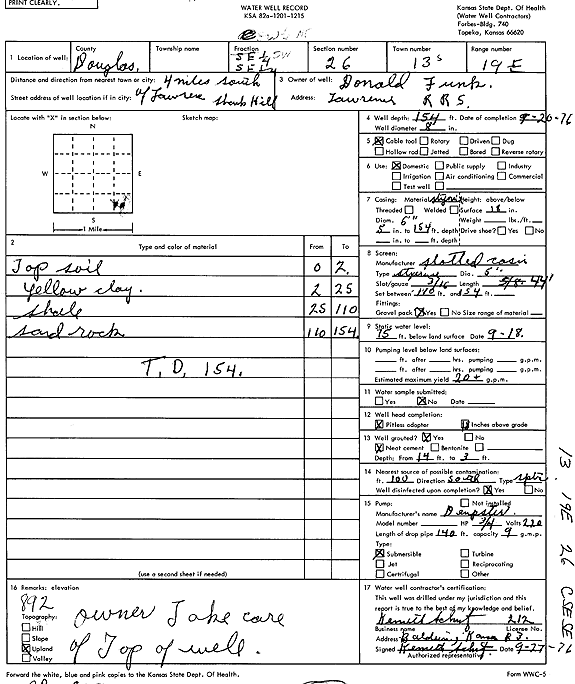 PRINT CLEARLY.
WATER WELL RECORD
KSA 82a-1201-1215
Kansas State Dept. Of Health
(Water Well Contractors)
Forbes-Bldg. 740
Topeka, Kansas 66620
1 Location of well:
County
Douglas
Township name
Fraction
SE 1/4 SW
SE 1/4
Section number
26
Town number
13 S
Range number
19 E
Distance and direction from nearest town or city: 4 miles south
of Lawrence
Street address of well location if in city:
3 Owner of well: Donald Funk.
Address: Lawrence R R 5.
Locate with "X" in section below:
Sketch map:
N
W
E
S
1 Mile
4 Well depth: 154 ft. Date of completion 9-20-76
Well diameter 8 in.
5 Cable tool Rotary Driven Dug
Hollow rod Jetted Bored Reverse rotary
6 Use: Domestic Public supply Industry
Irrigation Air conditioning Commercial
Test well
7 Casing: Material Height: above/below
Threaded Welded Surface 18 in.
Diam. 6" Weight lbs./ft.
5 in. to 154 ft. depth Drive shoe? Yes No
in. to ft. depth
2 Type and color of material From To
Top soil 0 2.
Yellow clay. 2 25
shale 25 110
sand rock 110 154.
T. D. 154.
(use a second sheet if needed)
8 Screen:
Manufacturer slotted
Type styrene Dia. 5"
Slot/gauze 3/16 Length
Set between 140 ft. and 154 ft.
Fittings:
Gravel pack Yes No Size range of material
9 Static water level:
75 ft. below land surface Date 9-18.
10 Pumping level below land surfaces:
ft. after hrs. pumping g.p.m.
ft. after hrs. pumping g.p.m.
Estimated maximum yield 20+ g.p.m.
11 Water sample submitted:
Yes No Date
12 Well head completion:
Pitless adapter Inches above grade
13 Well grouted? Yes No
Neat cement Bentonite
Depth: From 14 ft. to 3 ft.
14 Nearest source of possible contamination:
ft. 100 Direction South Type septic
Well disinfected upon completion? Yes No
15 Pump: Not installed
Manufacturer's name Dempster.
Model number HP 3/4 Volts 220
Length of drop pipe 140 ft. capacity 9 g.m.p.
Type:
Submersible Turbine
Jet Reciprocating
Certrifugal Other
16 Remarks: elevation
892
Topography:
Hill
Slope
Upland
Valley
owner Take care
of Top of well.
17 Water well contractor's certification:
This well was drilled under my jurisdiction and this
report is true to the best of my knowledge and belief.
212
Business name License No.
Address Baldwin, Kans R 3.
Signed Date 9-27-76
Authorized representative
13 19E 26 CSESE
Forward the white, blue and pink copies to the Kansas State Dept. Of Health.
Form WWC-5